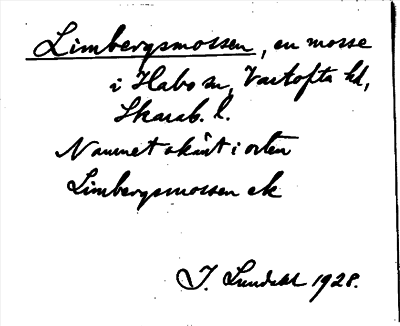 Limbergsmossen, en mosse
i Habo sn, Vartofta hd,
Skarab. l.
Namnet okänt i orten
Limbergsmossen ek
J. Lundahl 1928.